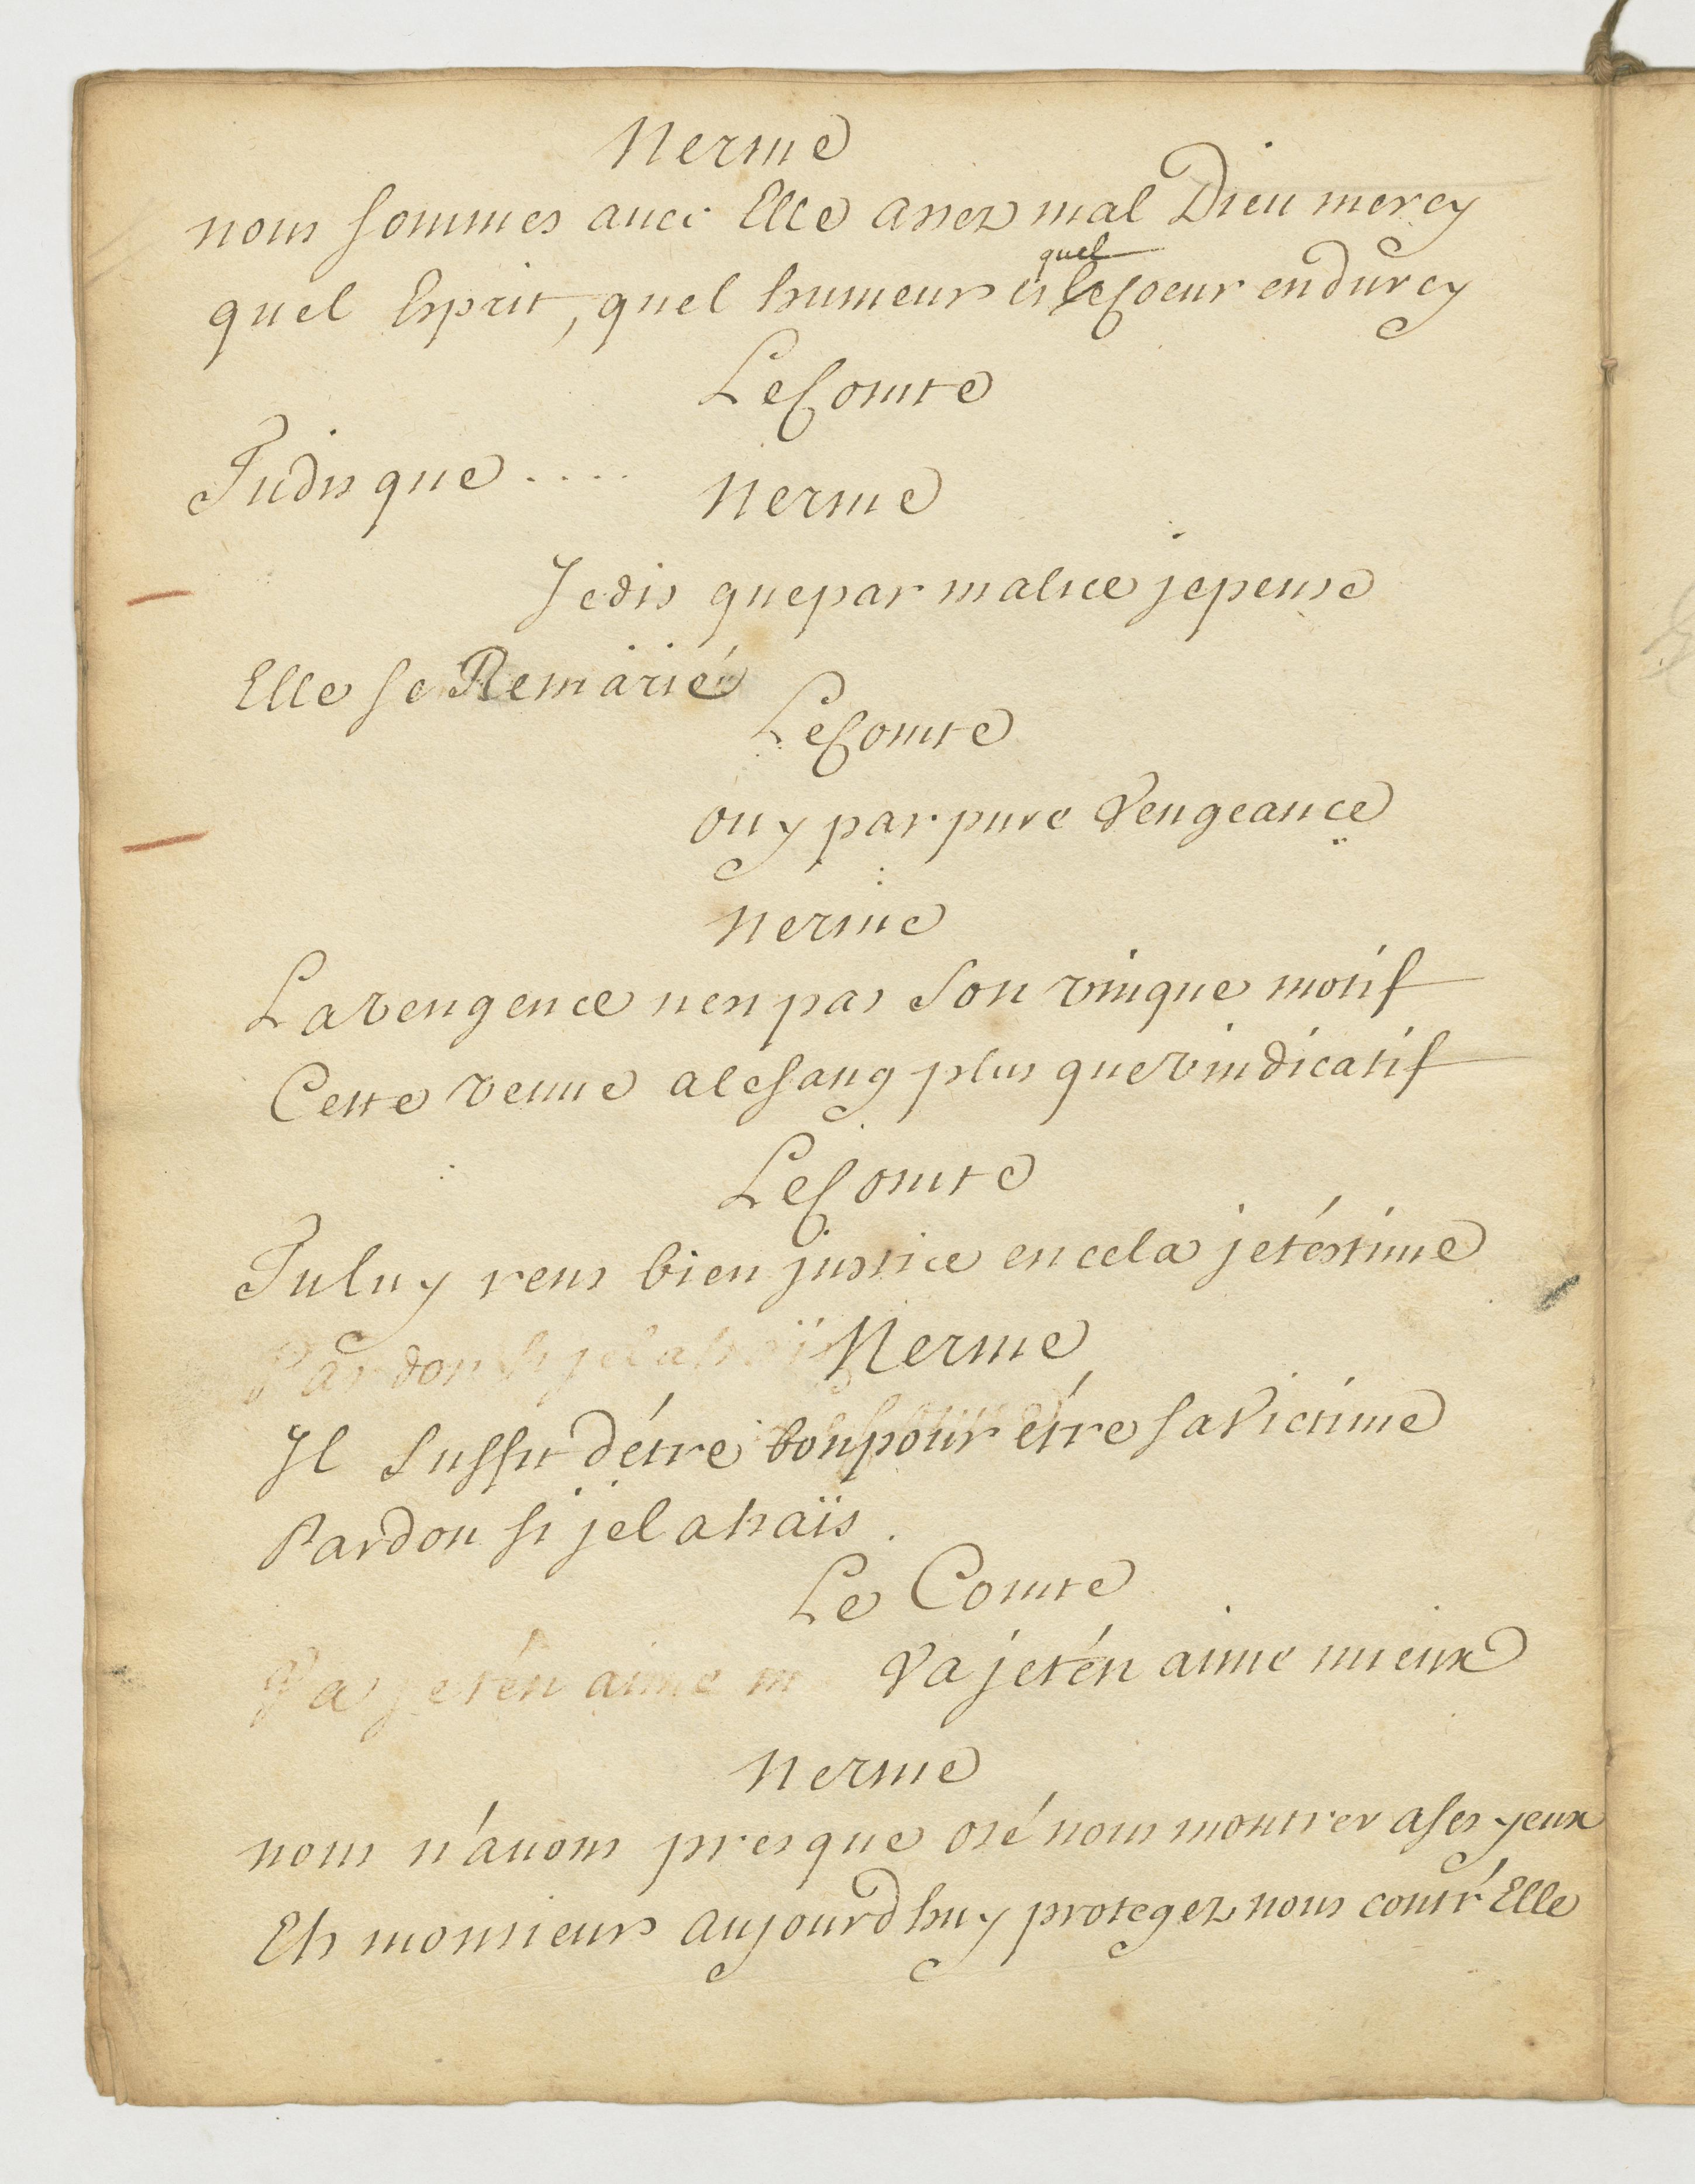 Nerine
nous sommes auec Elle assez mal Dieu mercy
quel
quel Esprit, quel humeur et le Coeur endurcy
Le Comte
Tu dis que ....
Nerine
Je dis que par malice je pense
Elle se Remarié
Le Comte
ouy par pure Vengeance
Nerine
La vengence nest pas Son vnique motif
Cette veuue a le sang plus que vindicatif
Le Comte
Tu luy rens bien justice en cela je téstime
Pardon si je la haïs
Nerine
Il Suffit détre bon pour étre sa Victime
Pardon si je la haïs.
Le Comte
Va je tén aime m
Va je tén aime mieux
Nerine
nous n'áuons presque osé nous montrer a ses yeux
Eh monsieur aujourdhuy protegez nous contr'Elle